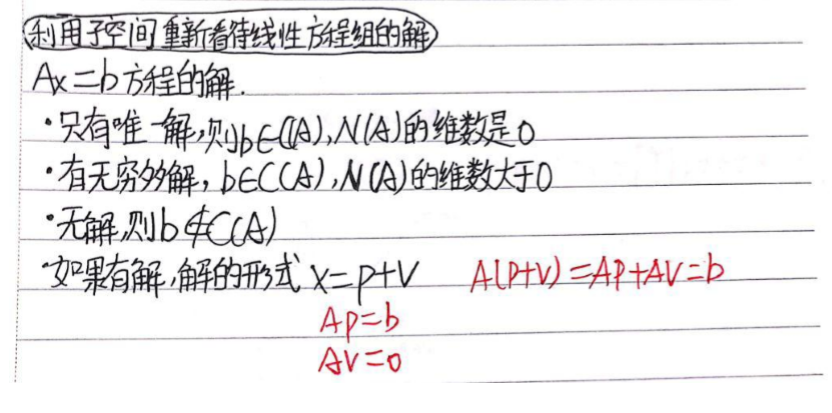 利用子空间重新看待线性方程组的解
Ax=b方程的解.
·只有唯一解,则b∈C(A),N(A)的维数是0
·有无穷多解,b∈C(A),N(A)的维数大于0
·无解,则b∉C(A)
·如果有解,解的形式 x=p+v A(p+v)=Ap+Av=b
Ap=b
Av=0